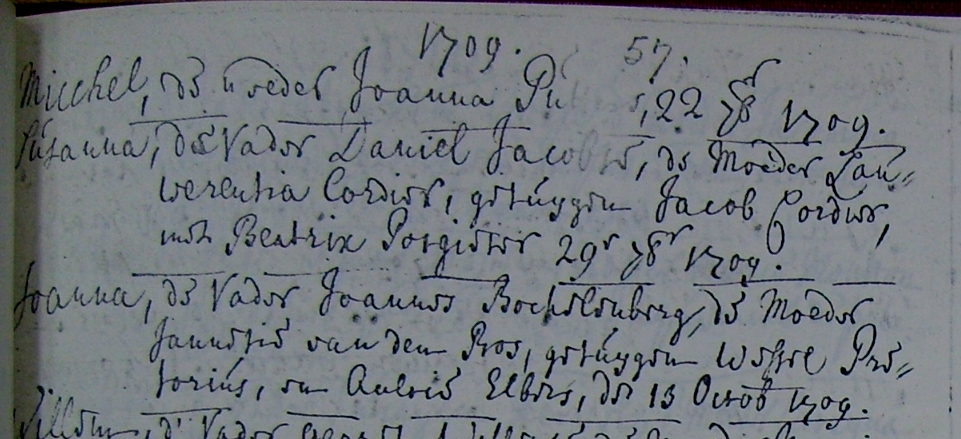 1709. 57.
Micchel, de moeder Joanna Pu 22 7br 1709.
Susanna, de Vader Daniel Jacobse, de Moeder Lau„
werentia Cordier, getuygen Jacob Cordier,
met Beatrix 29r 7br 1709.
Joanna, de Vader Joannes Bocheldenberg, de Moeder
Jannetie van den Bos, getuygen Wessel Pre„
torius, en Elbers, der 13 Octob 1709.
Willem, d' Vader